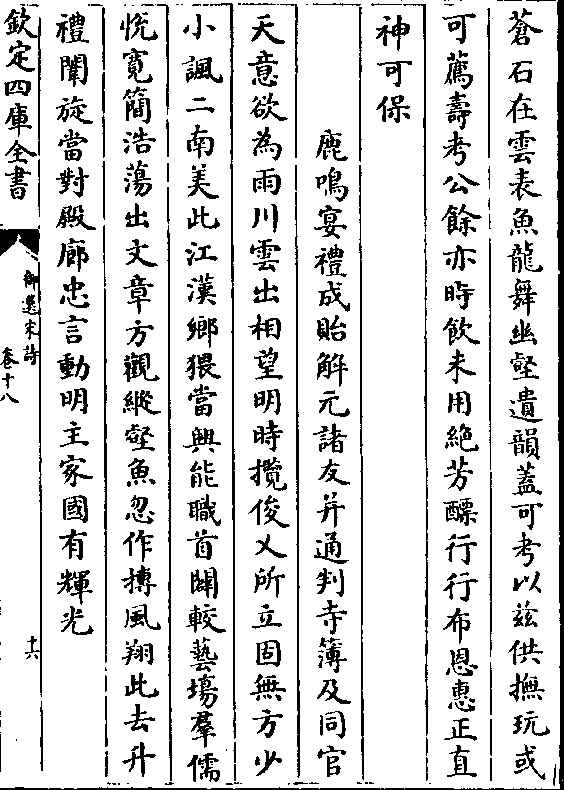 蒼石在雲表魚龍舞幽壑遺韻蓋可考以茲供撫玩或
可薦壽考公餘亦時飲未用絶芳醥行行布恩惠正直
神可保
鹿鳴宴禮成貽解元諸友并通判寺簿及同官
天意欲為雨川雲出相望明時攬俊乂所立固無方少
小諷二南美此江漢鄉猥當興能職首闢較藝場羣儒
恱寛簡浩蕩出文章方觀縱壑魚忽作摶風翔此去升
禮闈旋當對殿廊忠言動明主家國有輝光
欽定四庫全書
御選宋詩
卷十八
十六